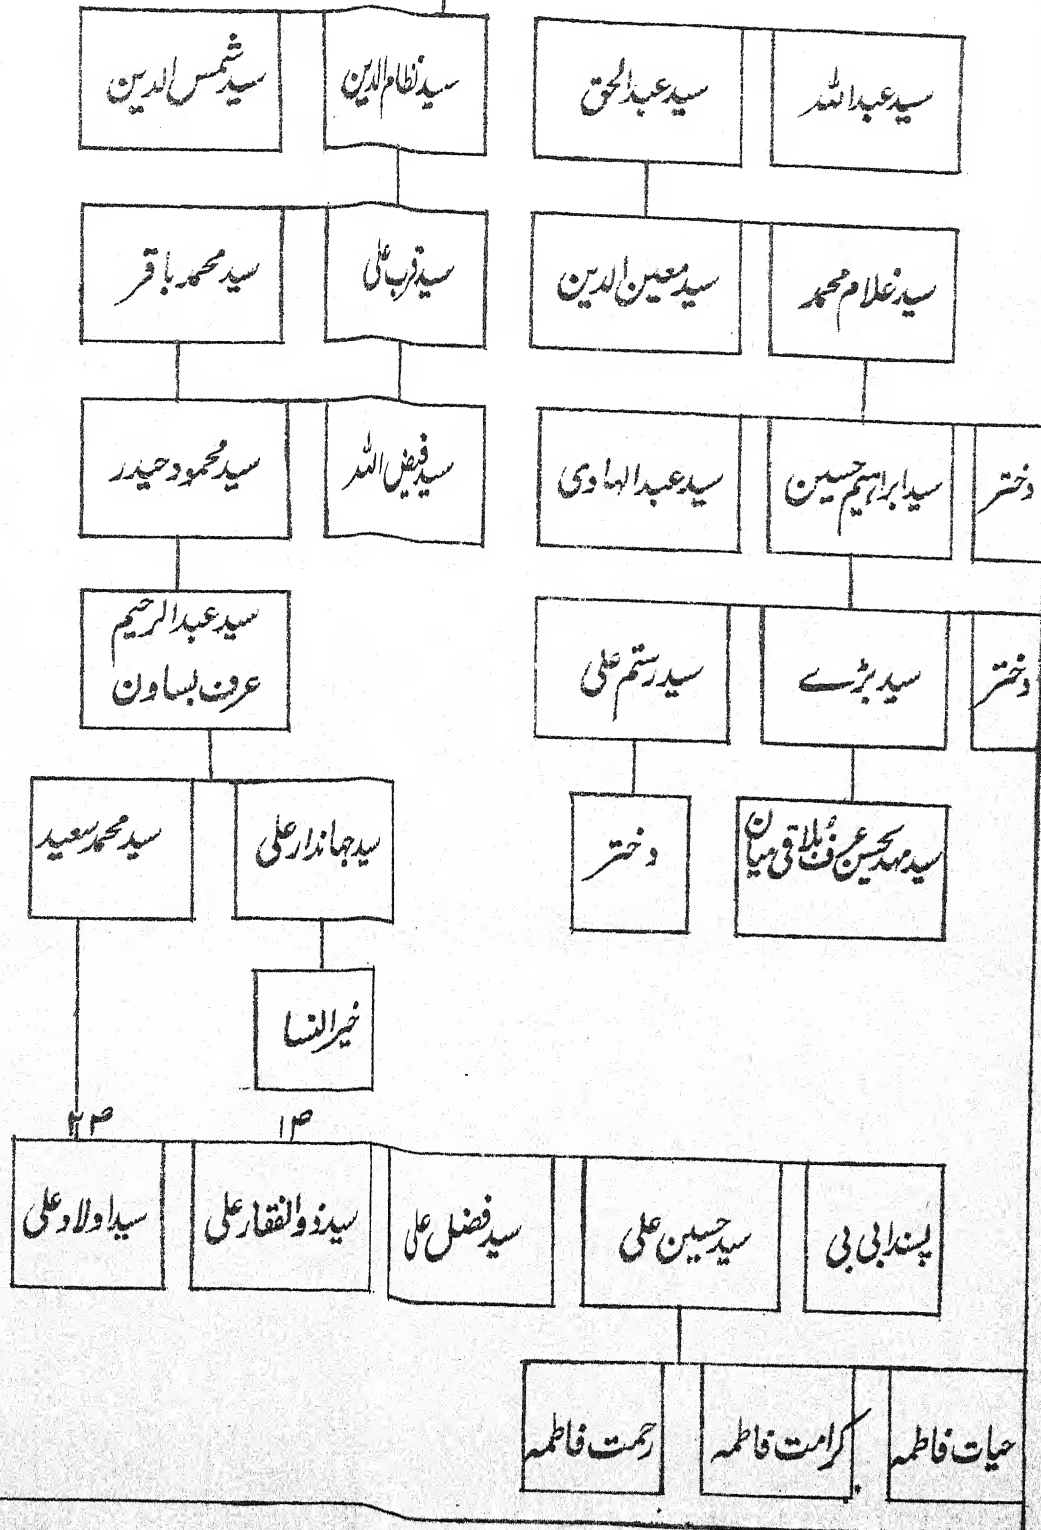 سید عبداللہ
سید عبدالحق
سید نظام الدین
سید شمس الدین
سید غلام محمد
سید معین الدین
سید قرب علی
سید محمد باقر
دختر
سید ابراہیم حسین
سید عبدالہادی
سید فیض اللہ
سید محمود حیدر
دختر
سید بڑے
سید رستم علی
سید عبدالرحیم
عرف بساون
سید مہدی حسین عرف بلاقی میاں
دختر
سید جہاندار علی
سید محمد سعید
خیر النسا
پسندا بی بی
سید حسین علی
سید فضل علی
سید ذوالفقار علی
سید اولاد علی
حیات فاطمہ
کرامت فاطمہ
رحمت فاطمہ